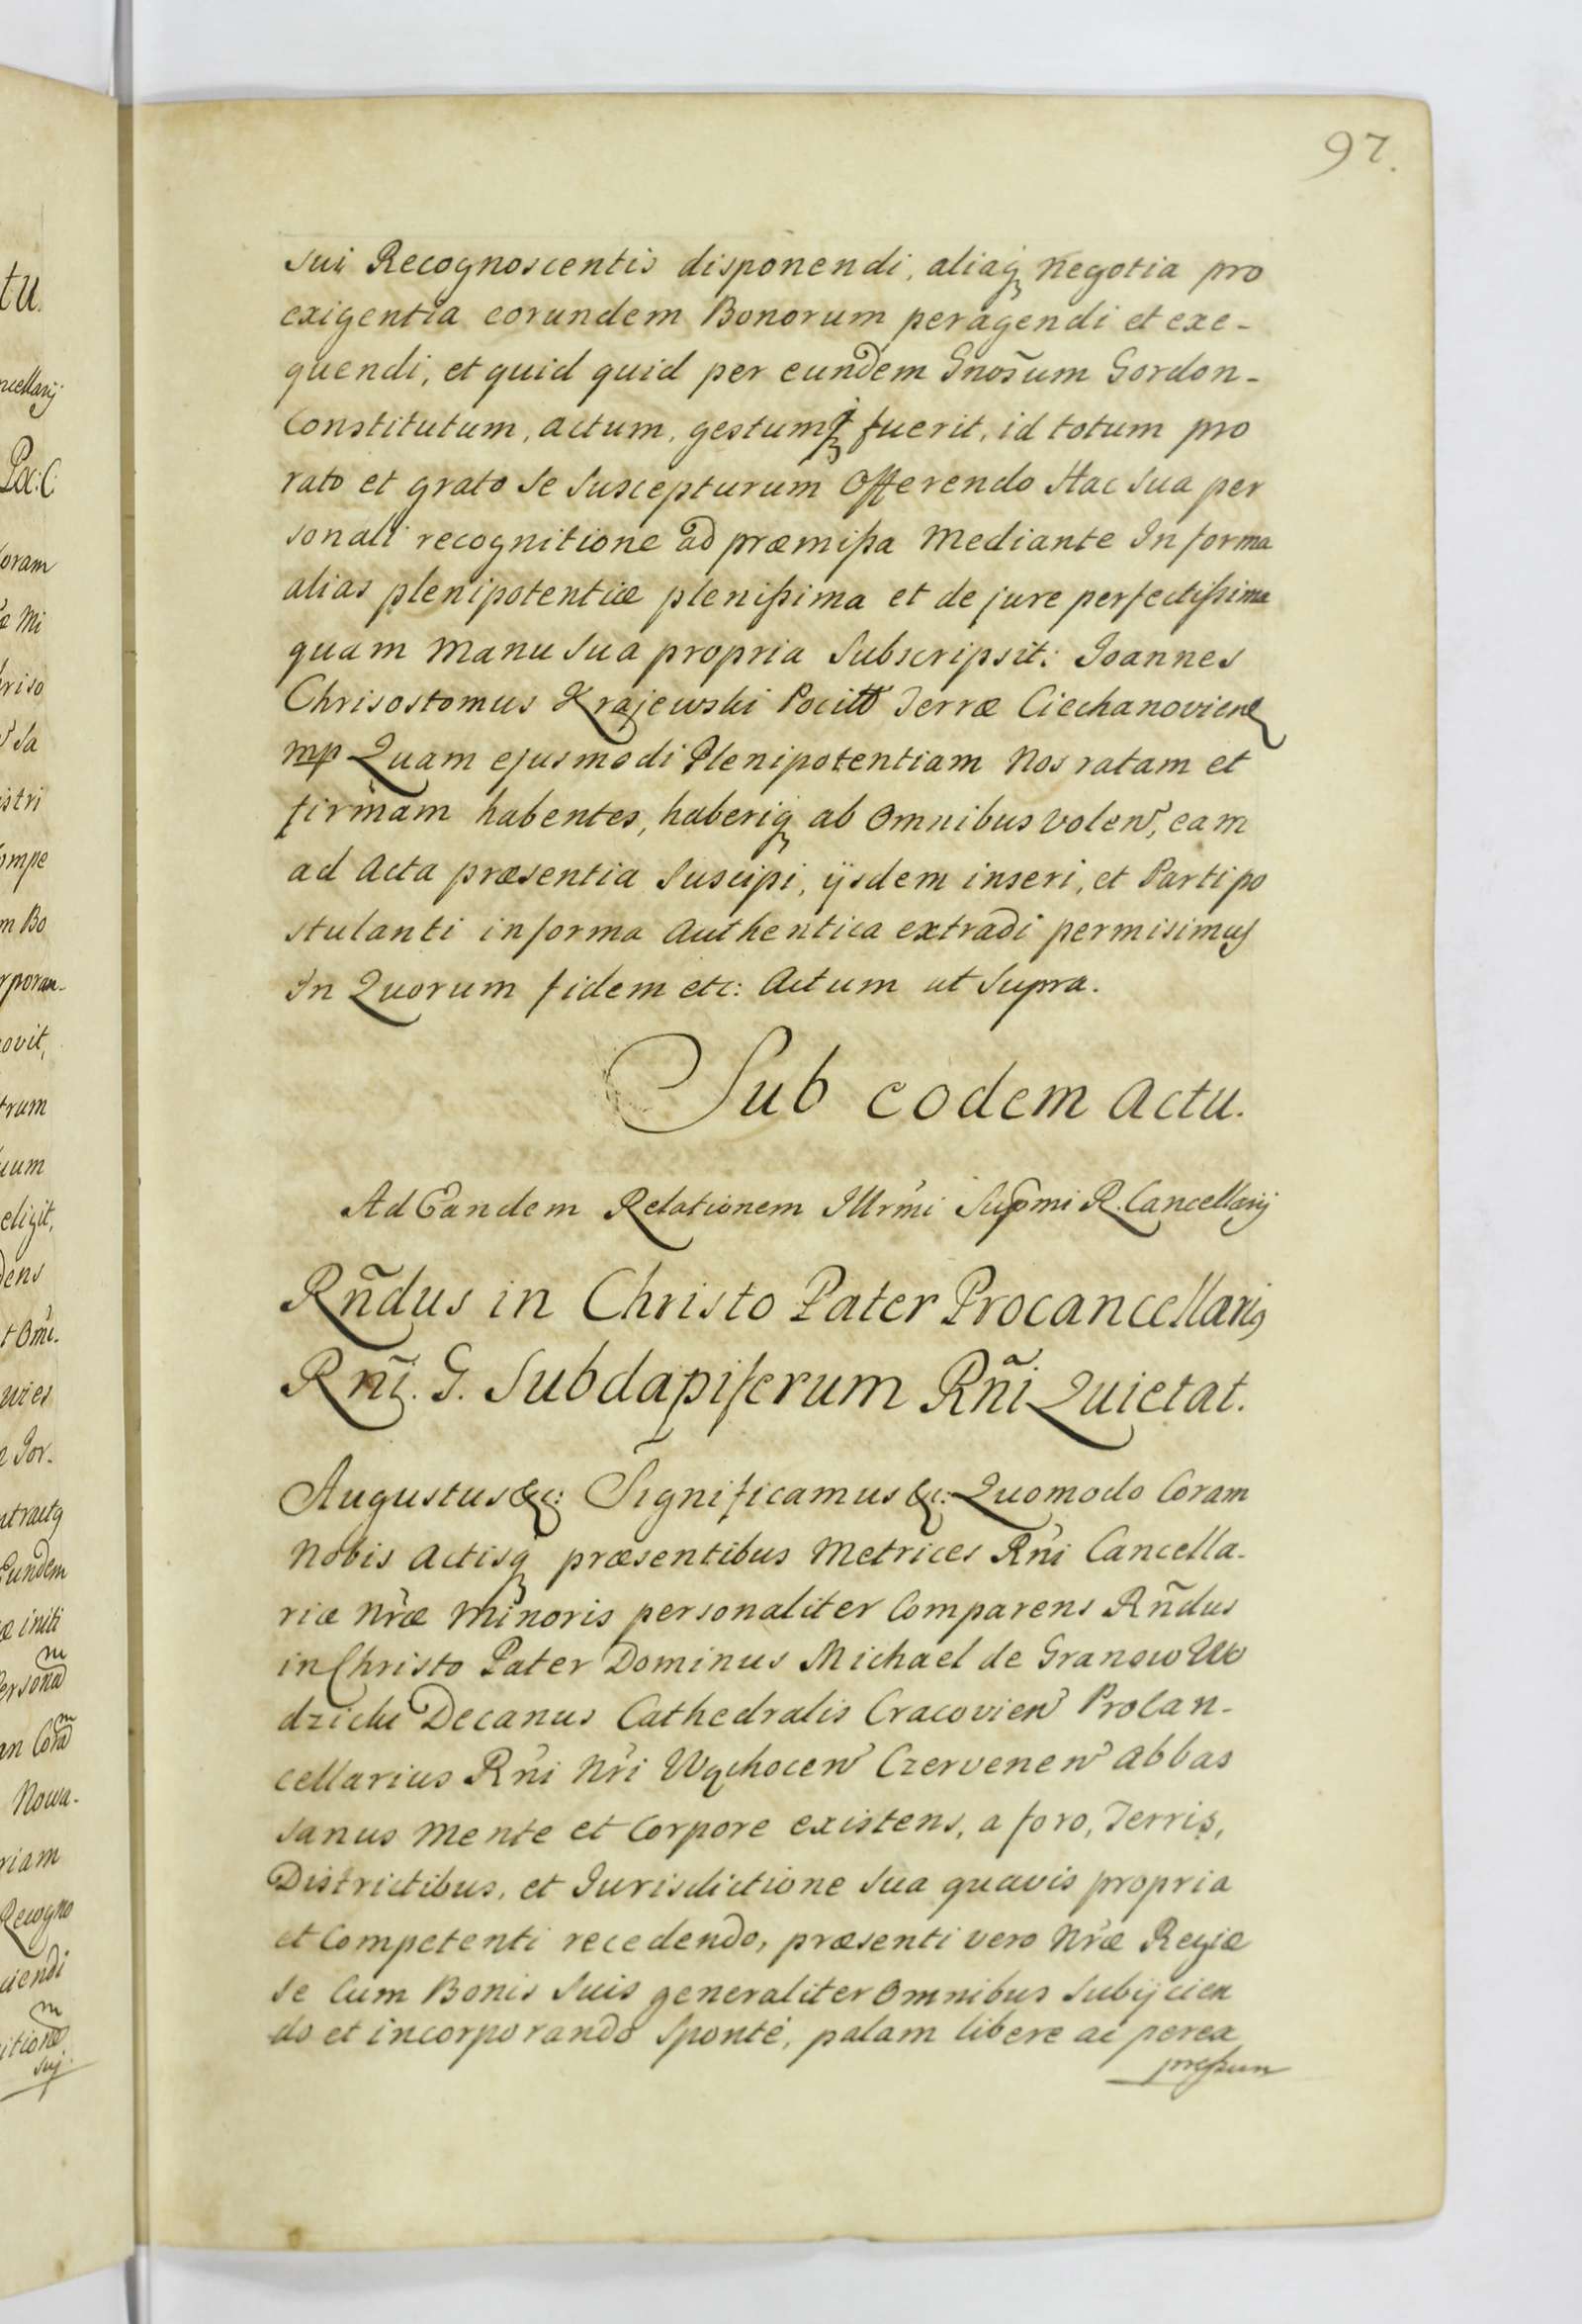 97.
sui Recognoscentis disponendi, aliaq̃ Negotia pro
exigentia eorundem Bonorum peragendi et exe-
quendi, et quid quid per eundem Gnos̃um Gordon-
Constitutum, actum, gestumq̃ fuerit, id totum pro
rato et grato se suscepturum offerendo Hac sua per
sonali recognitione ad præmißa Mediante In forma
alias plenipotentiæ plenißima et de jure perfectißima
quam Manu sua propria Subscripsit: Joannes
Chrisostomus Krajewski Pocill Terræ Ciechanovien
mp Quam ejusmodi Plenipotentiam Nos ratam et
firmam habentes, haberiq̃ ab omnibus volen̄, eam
ad Acta præsentia Suscipi, ijsdem inseri, et Parti po
stulanti in forma Authentica extradi permisimus
In Quorum fidem etc: Actum ut Supra.
Sub eodem Actu.
Ad Eandem Relationem Illr̃mi Supmi R. Cancellarij
Rñdus in Christo Pater Procancellarius
Rñi. G. Subdapiferum Rñi Quietat.
Augustus &c: Significamus &c: Quomodo Coram
Nobis Actisq̃ præsentibus Metrices Rñi Cancella-
riæ Nr̃æ Minoris personaliter Comparens Rñdus
in Christo Pater Dominus Michael de Granow Wo
dzicki Decanus Cathedralis Cracovien̄ Procan-
cellarius Rñi Nr̃i Wąchocen̄ Czervenen̄ Abbas
sanus Mente et Corpore existens, a foro, Terris,
Districtibus, et Jurisdictione sua quavis propria
et Competenti recedendo, præsenti vero Nr̃æ Regiæ
se Cum Bonis Suis generaliter omnibus Subijcien
do et incorporando Sponte, palam libere ac perea
preßum